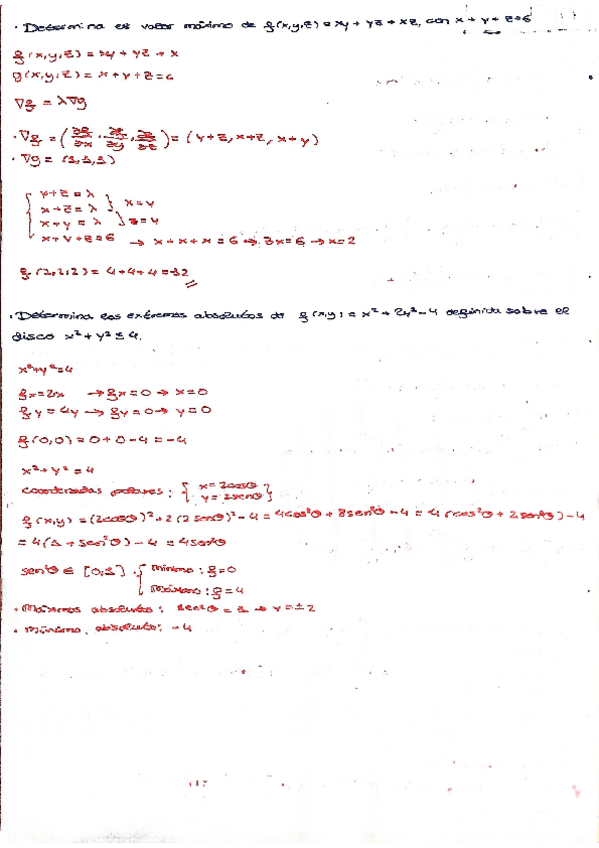 · Determina el valor máximo de f(x,y,z) = xy + yz + xz, con x + y + z = 6
f(x,y,z) = xy + yz + x
g(x,y,z) = x + y + z = 6
∇f = λ∇g
· ∇f = (∂f/∂x, ∂f/∂y, ∂f/∂z) = (y+z, x+z, x+y)
· ∇g = (1,1,1)
y+z = λ
x+z = λ } x=y
x+y = λ } z=y
x+y+z=6 → x+x+x = 6 → 3x=6 → x=2
f(2,2,2) = 4+4+4 = 12
· Determina los extremos absolutos de f(x,y) = x² + 2y² - 4 definida sobre el
disco x² + y² ≤ 4.
x²+y²=4
fx=2x → fx=0 → x=0
fy=4y → fy=0 → y=0
f(0,0) = 0+0-4 = -4
x² + y² = 4
coordenadas polares: { x=2cosθ
y=2senθ }
f(x,y) = (2cosθ)² + 2(2senθ)² - 4 = 4cos²θ + 8sen²θ - 4 = 4(cos²θ + 2sen²θ) - 4
= 4(1 + sen²θ) - 4 = 4sen²θ
sen²θ ∈ [0,1] . { mínimo : f=0
máximo : f=4
· Máximos absolutos : sen²θ = 1 → y=±2
· mínimo absoluto: -4